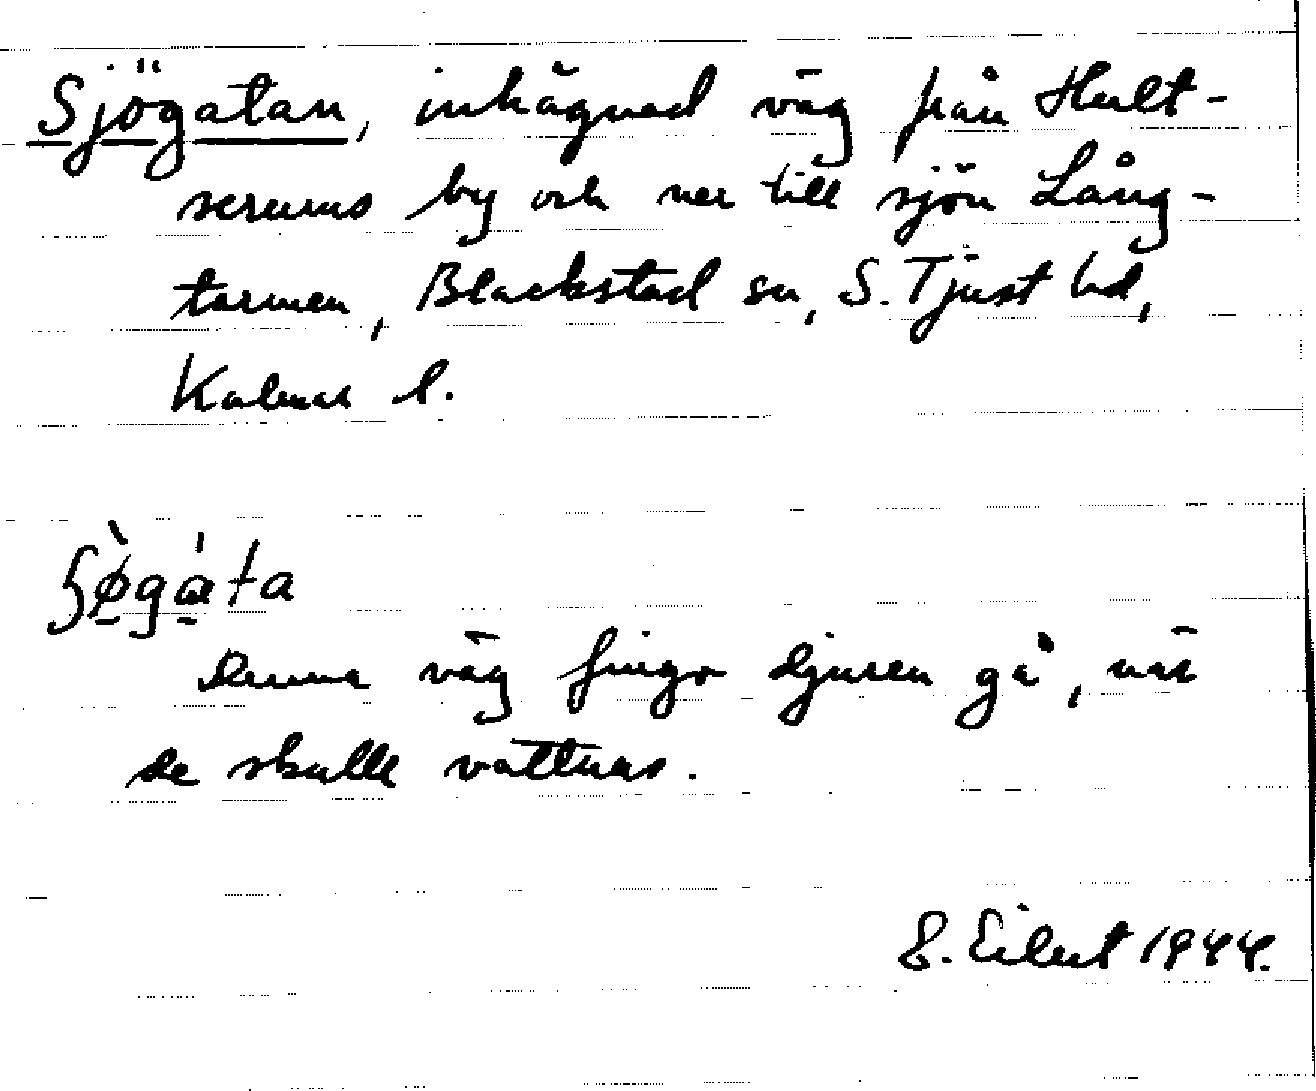 Sjögatan, inhägnad väg från Hult-
serums by och ner till sjön Lång-
tarmen, Blackstad sn, S. Tjust hd,
Kalmar l.
ʃø̀gàta
Denna väg fingo djuren gå, när
de skulle vattnas.
E. Eilert 1944.